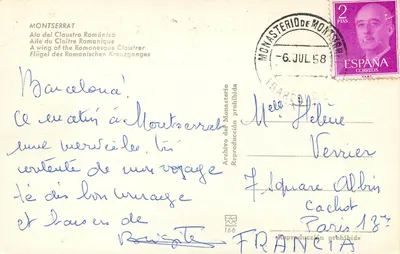 MONTSERRAT
Ala del Claustro Románico
Aile du Cloître Romanique
A wing of the Romanesque Cloister
Flügel des Romanischen Kreuzganges
Barcelona!
Ce matin à Montserrat
une merveille. très
contente de mon voyage
bon courage
et baisers de
Brigitte
Archivo del Monasterio
Reproducción prohibida
MONASTERIO DE MONTSERRAT
-6.JUL 58
2
PTAS
ESPAÑA
CORREOS
Melle Hélène
Verrier
7 Square Albin
Cachot
Paris 13
FRANCIA
Reproducción prohibida